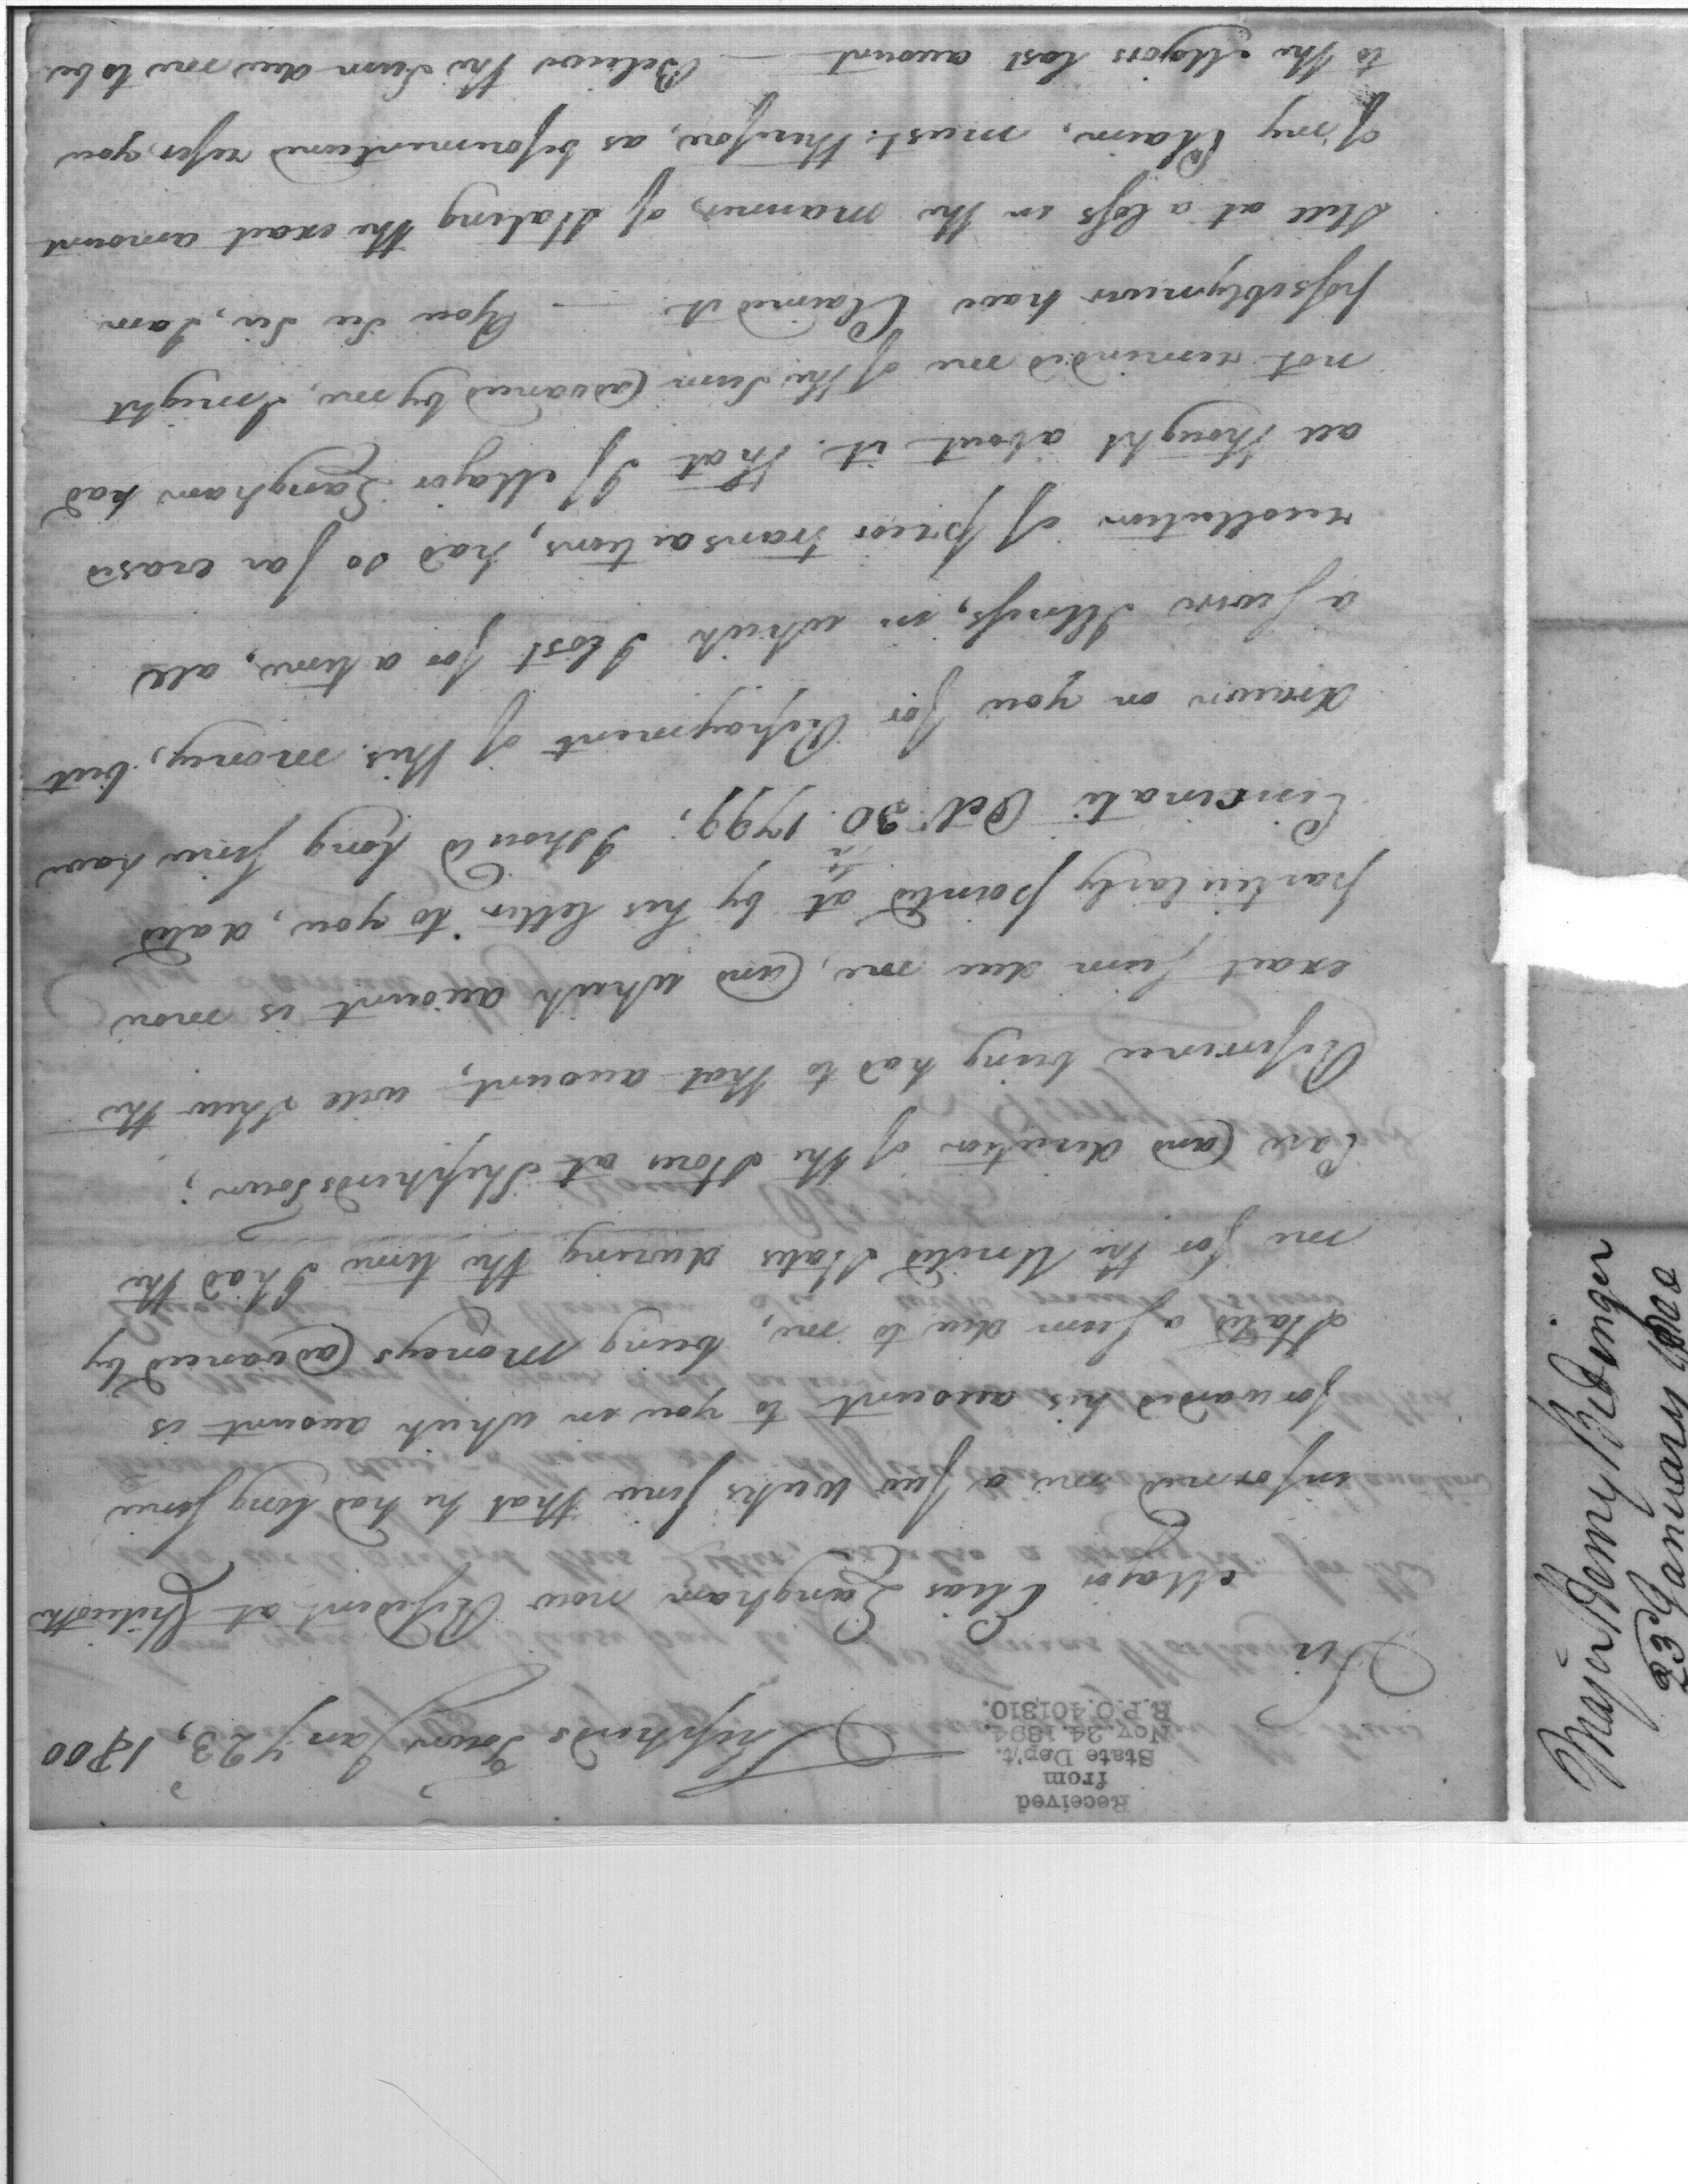 Received
from
State Dep't.
Nov. 24. 1894.
R.P.O. 401310.
Shepherds Town Jany 23, 1800
Sir
Major Elias Langham now Resident at
informed me a few weeks since that he had long since
forwarded his account to you in which account is
Stated a sum due to me, being moneys advanced by
me for the United States during the time I had the
Care and direction of the Stores at Shepherds Town;
Reference being had to that account, will shew the
exact sum due me, and which account is more
particularly pointed at by his letter to you, dated
Cincinati Oct 30. 1799; I should long since have
drawn on you for Repayment of this money, but
a severe Illness, in which I lost for a time, all
recollection of prior transactions, had so far erased
all thought about it. that If Major Langham had
not reminded me of the Sum advanced by me, I might
possibly never have Claimed it. — You see Sir, I am
still at a loss in the manner of stating the exact amount
of my Claim, must therefore, as beforementioned refer you
to the Majors last account — Believe the Sum due me to be
Major Henry Bedinger
23d January 1800